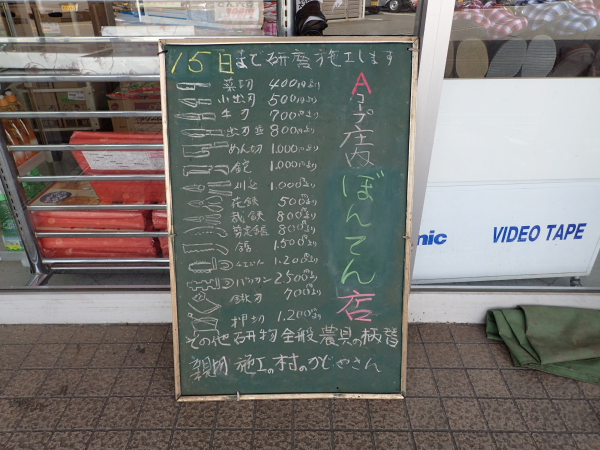 15日まで研磨施工します
菜切 400円より
小出刃 500円より
牛刀 700円より
出刃 800円より
めん切 1.000円より
1.000円より
刈込 1.000円より
花鋏 500円より
裁鋏 800円より
剪定鋏 800円より
鋸 1.500円より
チェーン 1.200円より
バリカン 2.500円より
700円より
押切 1.200円より
その他研物全般農具の柄替
親切施工の村のかじやさん
Aコープ店内
ぼんてん店
nic
VIDEO TAPE